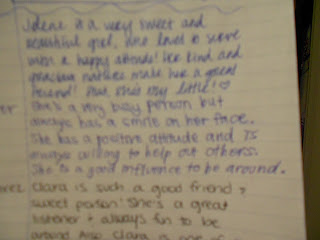 is a very sweet and
beautiful girl, who loves to serve
with a happy attitude! Her kind and
gracious nature make her a great
friend! Plus, she's my little! ♡
She's a very busy person but
always has a smile on her face.
She has a positive attitude and is
always willing to help out others.
She is a good influence to be around.
Clara is such a good friend &
sweet person! She's a great
listener & always fun to be
around. Also Clara is one of